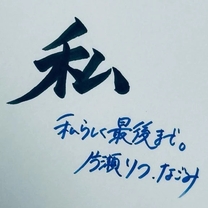 私
私らしく最後まで。
片瀬りつ.なごみ